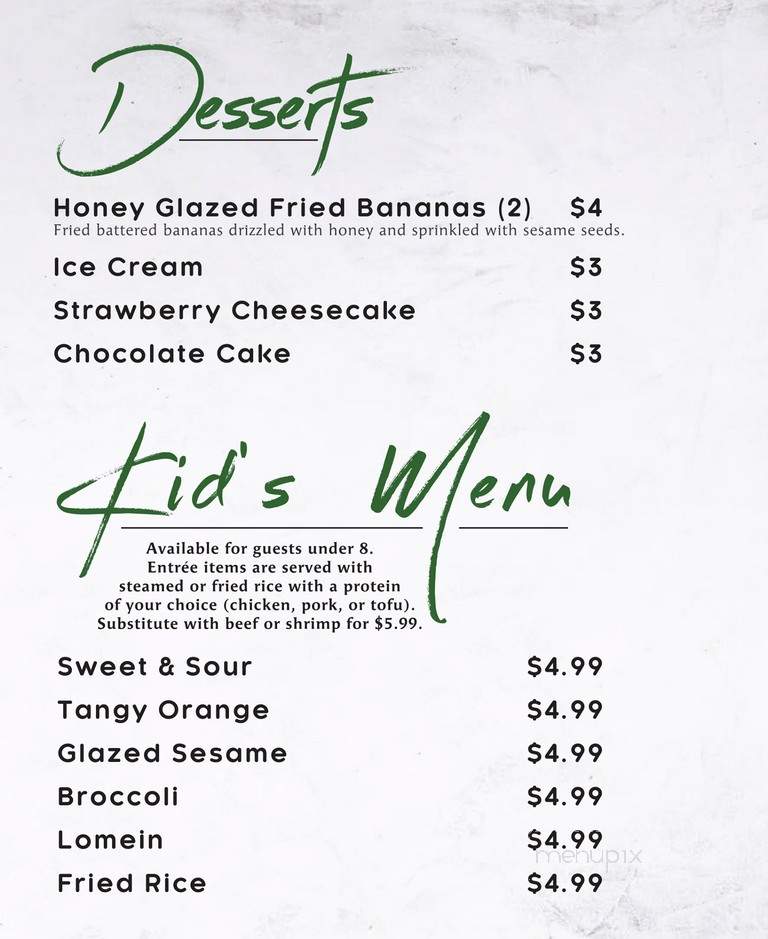 Desserts
Honey Glazed Fried Bananas (2) $4
Fried battered bananas drizzled with honey and sprinkled with sesame seeds.
Ice Cream $3
Strawberry Cheesecake $3
Chocolate Cake $3
Kid's Menu
Available for guests under 8.
Entrée items are served with
steamed or fried rice with a protein
of your choice (chicken, pork, or tofu).
Substitute with beef or shrimp for $5.99.
Sweet & Sour $4.99
Tangy Orange $4.99
Glazed Sesame $4.99
Broccoli $4.99
Lomein $4.99
menupix
Fried Rice $4.99